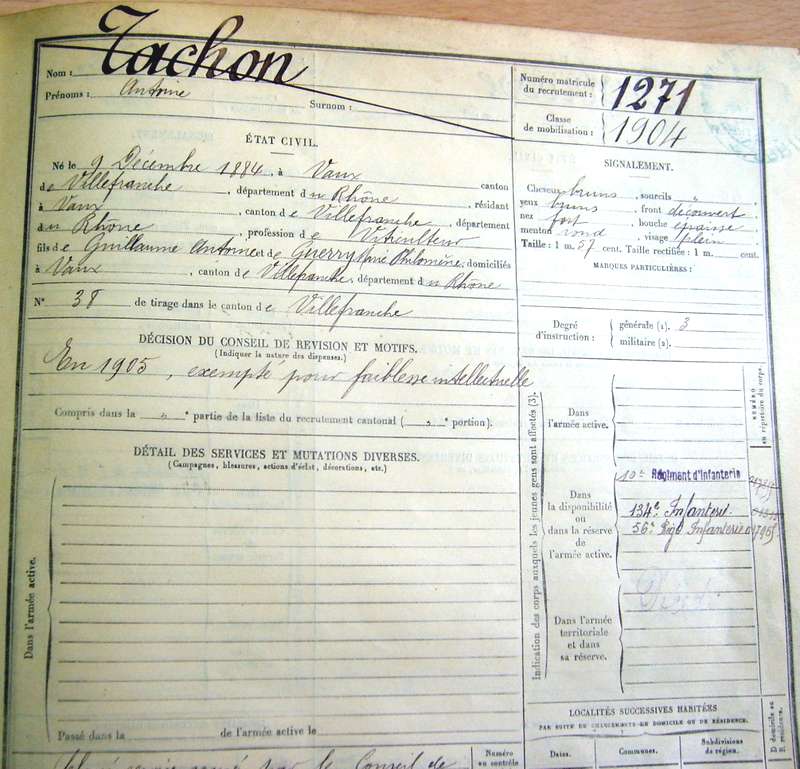 Nom : Tachon
Prénoms : Antoine
Surnom :
Numéro matricule du recrutement : 1271
Classe de mobilisation : 1904
ÉTAT CIVIL.
Né le 9 Décembre 1884, à Vaux canton
de Villefranche, département du Rhône, résidant
à Vaux, canton de Villefranche, département
du Rhône, profession de Vitriculteur
fils de Guillaume Antoine et de Guerry Marie Philomène, domiciliés
à Vaux, canton de Villefranche, département du Rhône
N° 38 de tirage dans le canton de Villefranche
SIGNALEMENT.
Cheveux bruns, sourcils "
yeux bruns, front découvert
nez fort, bouche épaisse
menton rond, visage plein
Taille : 1 m. 57 cent. Taille rectifiée : 1 m. cent.
MARQUES PARTICULIÈRES :
Degré d'instruction : générale (1). 3
militaire (2).
DÉCISION DU CONSEIL DE REVISION ET MOTIFS.
(Indiquer la nature des dispenses.)
En 1905, exempté pour faiblesse intellectuelle
Compris dans la " e partie de la liste du recrutement cantonal ( " e portion).
DÉTAIL DES SERVICES ET MUTATIONS DIVERSES.
(Campagnes, blessures, actions d'éclat, décorations, etc.)
Dans l'armée active.
Passé dans la de l'armée active le
Indication des corps auxquels les jeunes gens sont affectés (3).
NUMÉRO
au répertoire du corps.
Dans
l'armée active.
Dans
la disponibilité
ou
dans la réserve
de
l'armée active.
10e Régiment d'Infanterie
134e Infanterie
56e Rég Infanterie
Dans l'armée
territoriale
et dans
sa réserve.
LOCALITÉS SUCCESSIVES HABITÉES
PAR SUITE DE CHANGEMENTS DE DOMICILE OU DE RÉSIDENCE.
Dates.
Communes.
Subdivisions
de région.
D. domicile ou
R. résidence.
Numéro
au contrôle
par le Conseil de